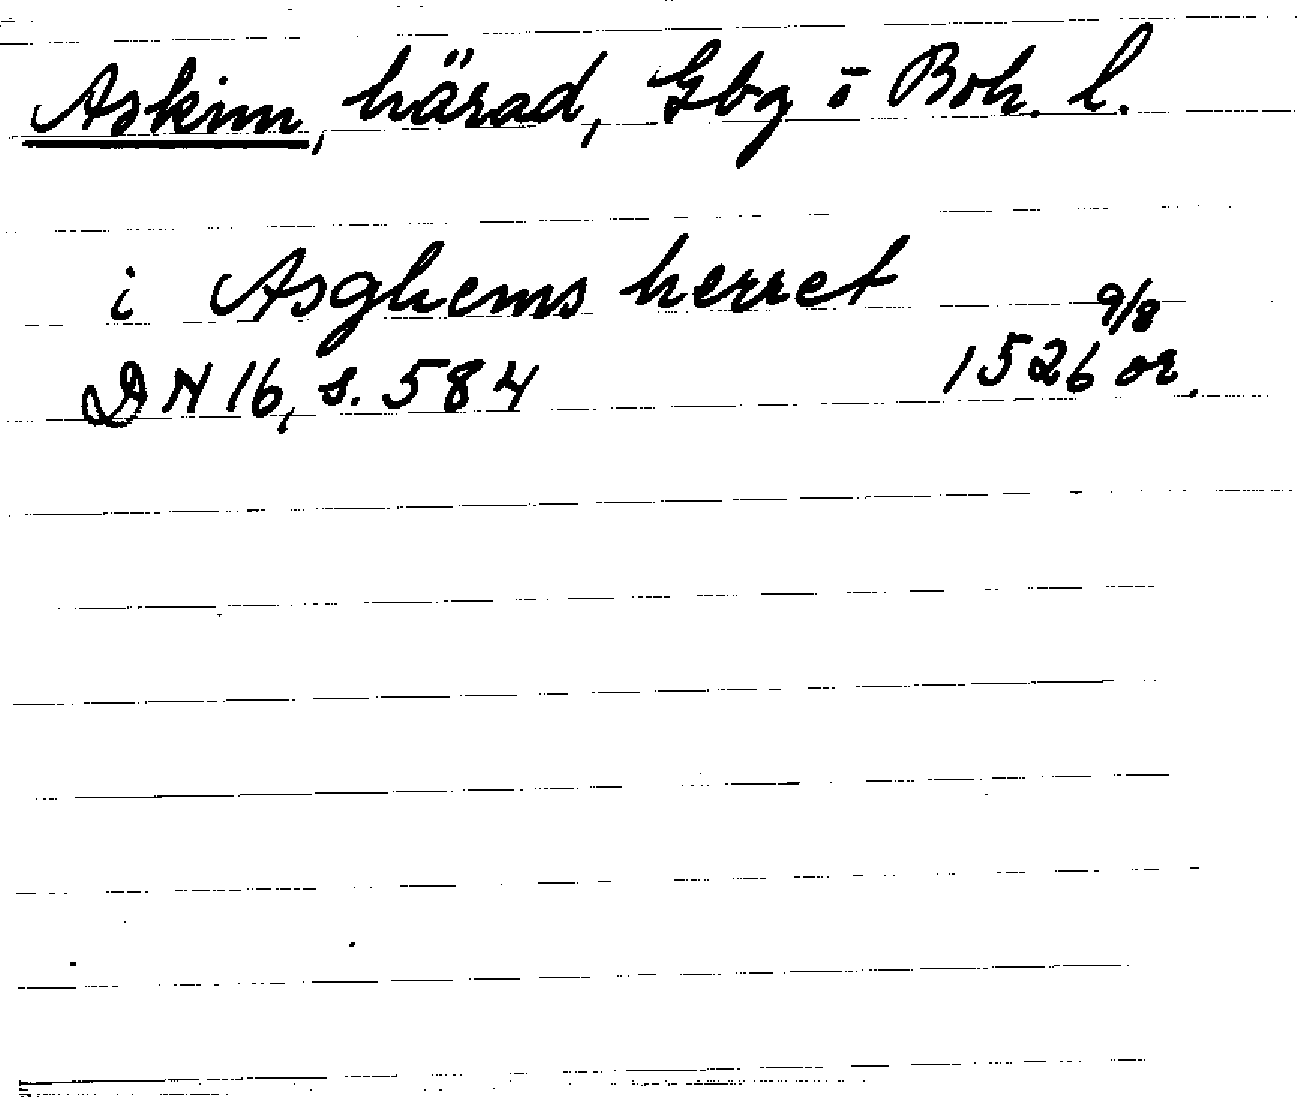 Askim, härad, Gbg o Boh. l.
i Asghems herret 9/8
DN 16, s. 584 1526 or.